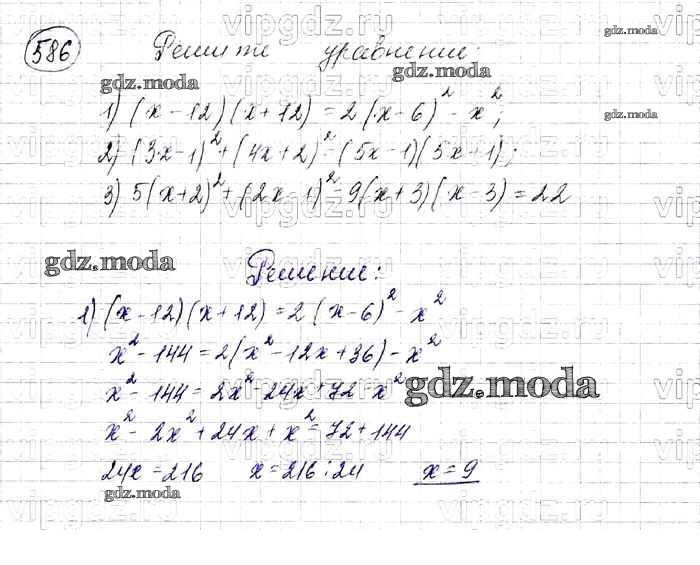 586 Решите уравнение:
1) (x - 12)(x + 12) = 2(x - 6)² - x²;
2) (3x - 1)² + (4x + 2)² = (5x - 1)(5x + 1);
3) 5(x + 2)² + (2x - 1)² - 9(x + 3)(x - 3) = 22
Решение:
1) (x - 12)(x + 12) = 2(x - 6)² - x²
x² - 144 = 2(x² - 12x + 36) - x²
x² - 144 = 2x² - 24x + 72 - x²
x² - 2x² + 24x + x² = 72 + 144
24x = 216 x = 216 : 24 x = 9
gdz.moda
gdz.moda
gdz.moda
gdz.moda
gdz.moda
gdz.moda
gdz.moda
vipgdz.ru